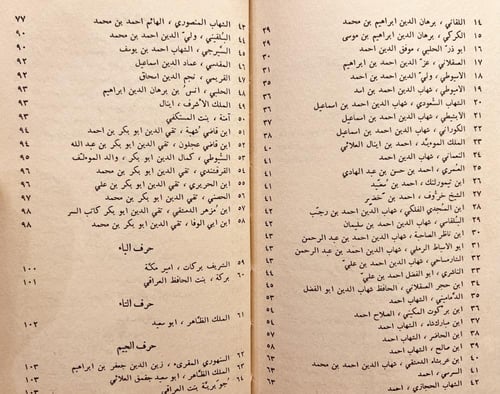 ١٤ اللقاني ، برهان الدين ابراهيم بن محمد ٢٩
١٥ الكركي ، برهان الدين ابراهيم بن موسى ٢٩
١٦ ابو ذرّ الحلبي ، موفق الدين احمد ٣٠
١٧ العسقلاني ، عزّ الدين احمد بن ابراهيم ٣١
١٨ الاسيوطي ، وليّ الدين احمد
١٩ الاميوطي ، شهاب الدين احمد بن اسد
٢٠ الشهاب السعودي ، شهاب الدين احمد بن اسماعيل ٣٦
٢١ الابشيطي ، شهاب الدين احمد بن اسماعيل ٣٧
٢٢ الكوراني ، شهاب الدين احمد بن اسماعيل ٣٨
٢٣ الملك المؤيد ، احمد بن اينال العلائي ٤٠
٢٤ النعماني ، شهاب الدين احمد
٢٥ العمري ، احمد بن حسن بن عبد الهادي
٢٦ ابن تيمورلنك ، احمد بن
٢٧ الشيخ خروف ، احمد بن خضير ٤١
٢٨ ابن المجدي الفلكي ، شهاب الدين احمد بن رجب ٤٢
٢٩ البلقاسي ، شهاب الدين احمد بن سليمان ٤٢
٣٠ ابن ناظر الصاحبة ، شهاب الدين احمد بن عبد الرحمن ٤٣
٣١ ابو الاسباط الرملي ، شهاب الدين احمد بن عبد الرحمن ٤٣
٣٢ شهاب الدين احمد بن عليّ ٤٣
٣٣ ابو الفضل احمد بن عليّ ٤٤
٣٤ ابن حجر العسقلاني ، الحافظ شهاب الدين ابو الفضل ٤٥
٣٥ الدماميني ، شهاب الدين احمد ٥٣
٣٦ ابن بركوت المكيني ، الصلاح احمد ٥٤
٣٧ ابن مباركشاه ، الشهاب احمد ٥٤
٣٨ ابن الحاضر ، الشهاب احمد ٥٧
٣٩ ابن صالح ، الشهاب احمد ٥٨
٤٠ ابن عربشاه الدمشقي ، شهاب الدين احمد بن محمد ٦٠
٤١ السرسي ، احمد ٦٣
٤٢ الشهاب الحجازي ، احمد ٦٣
٤٣ الشهاب المنصوري ، الهائم احمد بن محمد ٧٧
٤٤ البلقيني ، وليّ الدين احمد بن محمد ٩٠
٤٥ السيرجي ، الشهاب احمد بن يوسف ٩٠
٤٦ المقدسي ، عماد الدين اسماعيل ٩٢
٤٧ القريمي ، نجم الدين اسحاق ٩٢
٤٨ الحلبي ، انس بن برهان الدين ابراهيم ٩٢
٤٩ الملك الأشرف ، اينال ٩٣
٥٠ آمنة ، بنت المستكفي ٩٣
٥١ ابن قاضي شهبة ، تقي الدين ابو بكر بن احمد ٩٤
٥٢ ابن قاضي عجلون ، تقي الدين ابو بكر بن عبد الله ٩٤
٥٣ السيوطي ، كمال الدين ابو بكر ، والد المؤلف ٩٥
٥٤ القرقشندي ، تقي الدين ابو بكر بن محمد ٩٦
٥٥ ابن الحريري ، تقي الدين ابو بكر بن علي ٩٦
٥٦ الحصني ، تقي الدين ابو بكر بن محمد ٩٧
٥٧ ابن مزهر الدمشقي ، تقي الدين ابو بكر كاتب السر ٩٨
٥٨ ابن ابي الوفا ، تقي الدين ابو بكر بن محمد ٩٨
حرف الباء
٥٩ الشريف بركات ، امير مكة ١٠٠
٦٠ بركة ، بنت الحافظ العراقي ١٠١
حرف التاء
٦١ الملك الظاهر ، ابو سعيد ١٠٢
حرف الجيم
٦٢ السنهوري المقرىء ، زين الدين جعفر بن ابراهيم ١٠٣
٦٣ الملك الظاهر ، ابو سعيد جقمق العلائي ١٠٣
٦٤ جويرية بنت العراقي